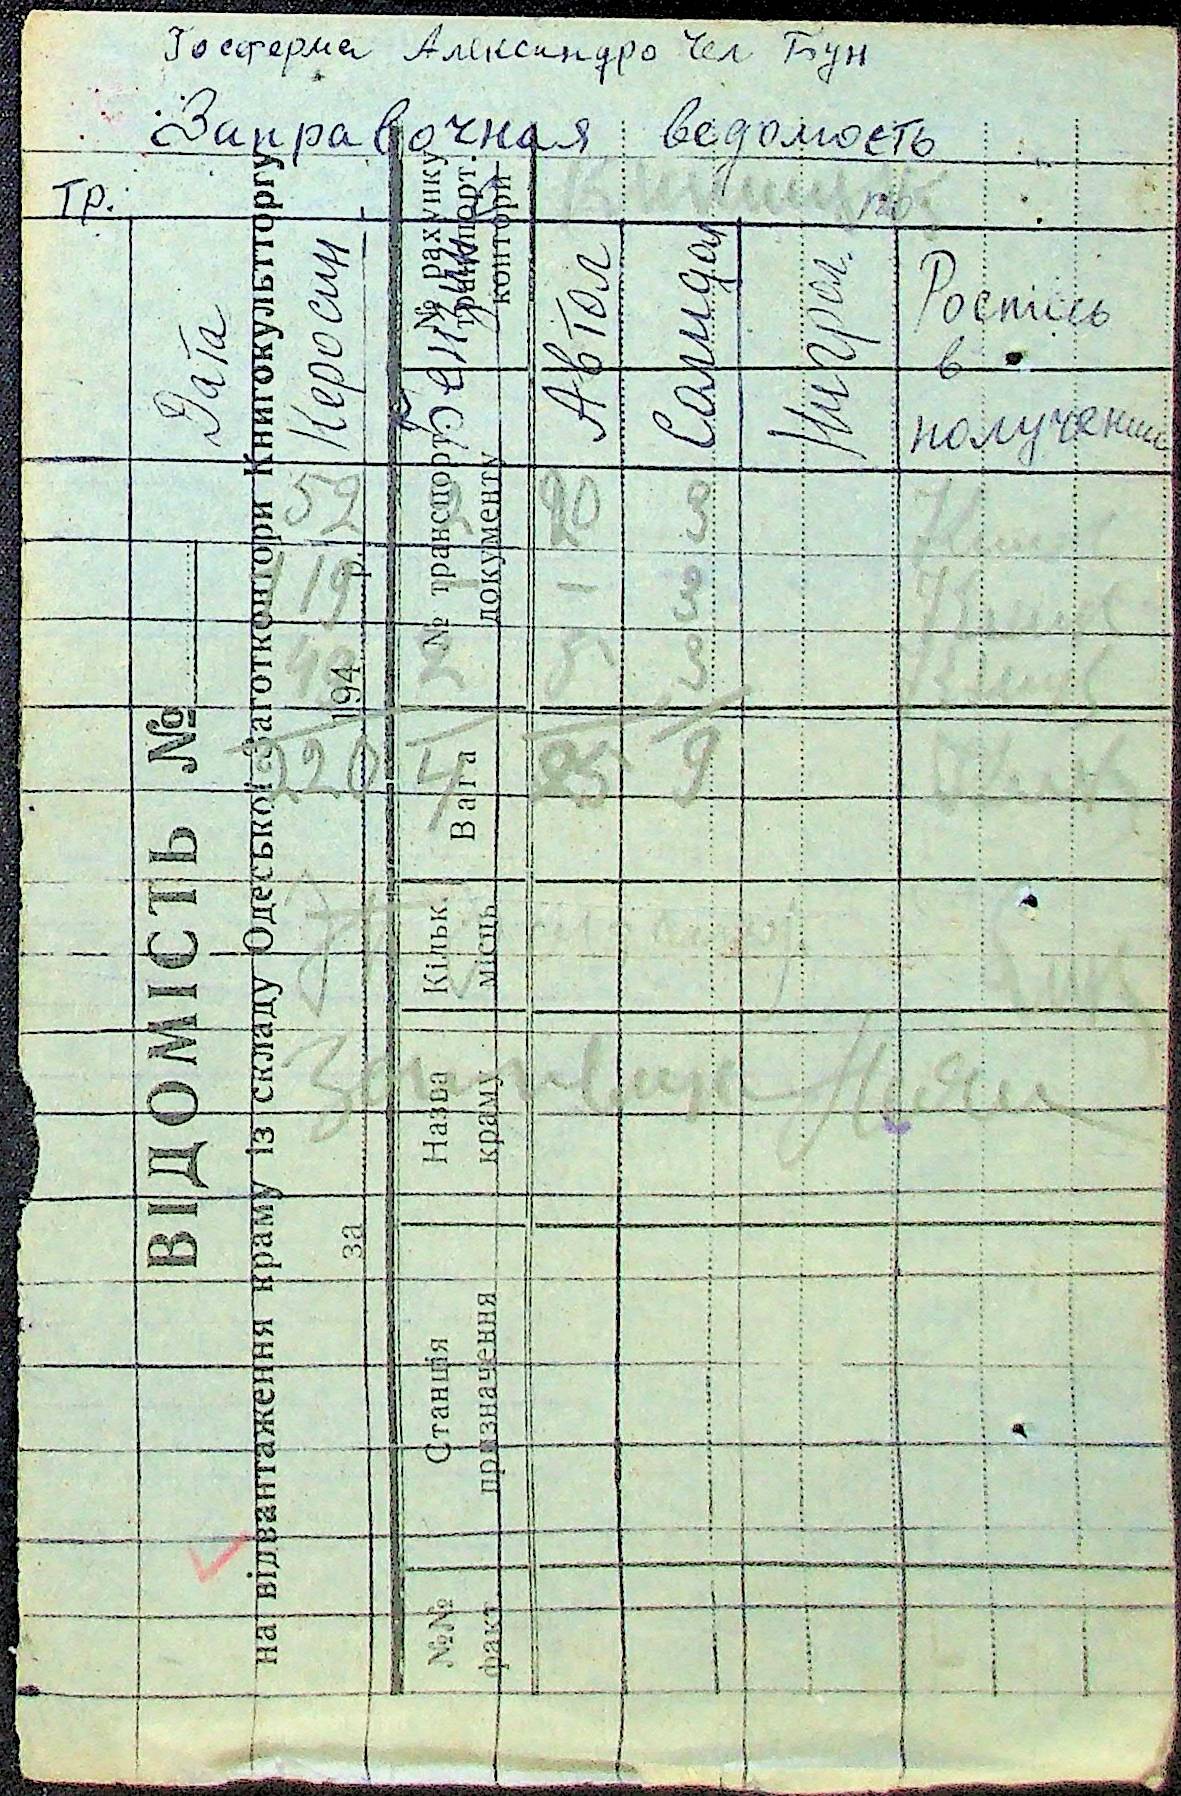 Госферма Александро Чел Бун
Заправочная ведомость
Тр. №
Дата Керосин Бензин Автол Солидол Нигрол. Роспись в получении
52 2 20 3
119 - - 3
49 2 5 3
220 4 25 9
ВІДОМІСТЬ №
на відвантаження краму із складу Одеської Заготконтори Книгокультторгу
за 194 р.
№№ факт
Станція призначення
Назва краму
Кільк. місць
Вага
№ транспорт. документу
№ рахунку транспорт. контори